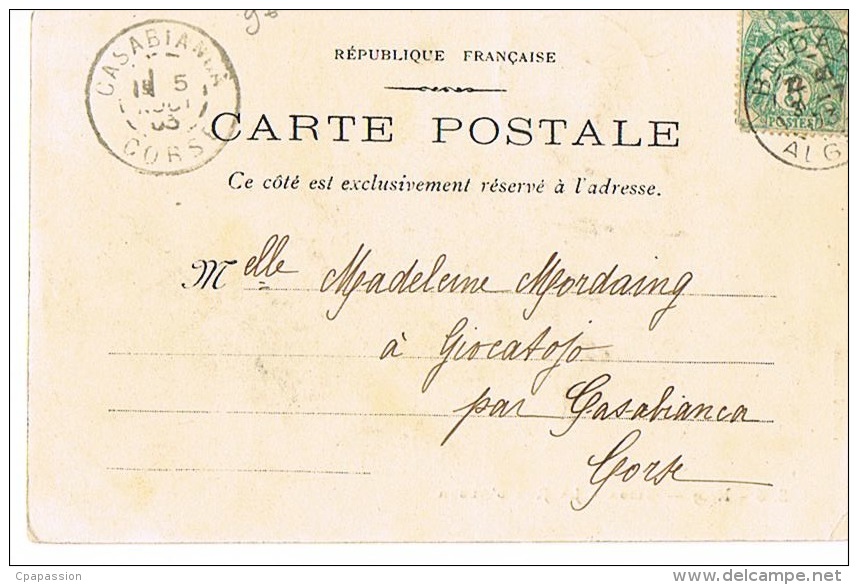 RÉPUBLIQUE FRANÇAISE
CASABIANCA
5
CORSE
POSTES
ALG
CARTE POSTALE
Ce côté est exclusivement réservé à l'adresse.
Melle Madeleine Mordaing
à Giocatojo
par Casabianca
Corse
Cpapassion
www.delcampe.net